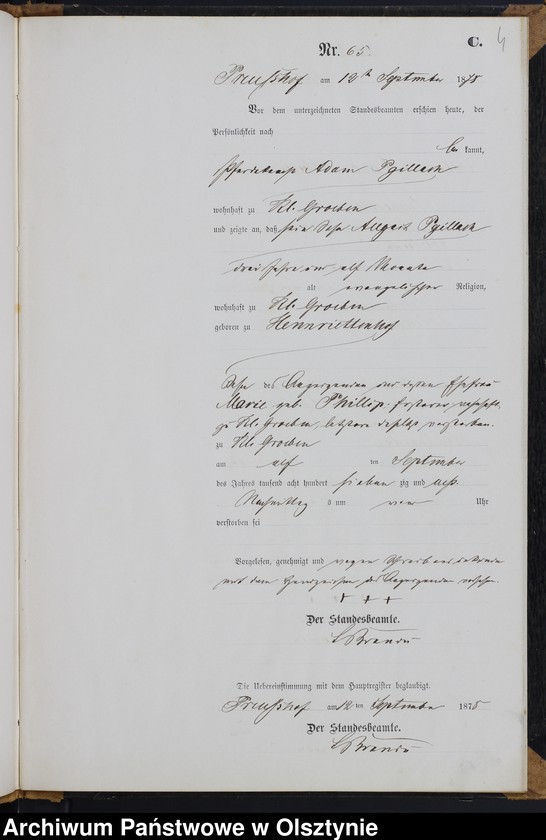 C.
4
Nr. 65.
Preußhof am 12th September 1875
Vor dem unterzeichneten Standesbeamten erschien heute, der
Persönlichkeit nach
be kannt,
Adam Pgillach
wohnhaft zu Kl. Groeben
und zeigte an, daß sein Sohn August Pgillach
drei Jahre und elf Monate
alt evangelischer Religion,
wohnhaft zu Kl. Groeben
geboren zu Hennriettenhof
Sohn des Angezeigenden und dessen Ehefrau
Marie geb. Phillip, ersterer wohnhaft
zu Kl. Groeben, letztere daselbst verstorben.
zu Kl. Groeben
am elf ten September
des Jahres tausend acht hundert sieben zig und
Nachmittag s um vier Uhr
verstorben sei
Vorgelesen, genehmigt und wegen Schreibensunkunde
mit dem Handzeichen des Anzeigenden versehen.
+ + +
Der Standesbeamte.
Die Uebereinstimmung mit dem Hauptregister beglaubigt.
Preußhof am 12 ten September 1875
Der Standesbeamte.
Archiwum Państwowe w Olsztynie